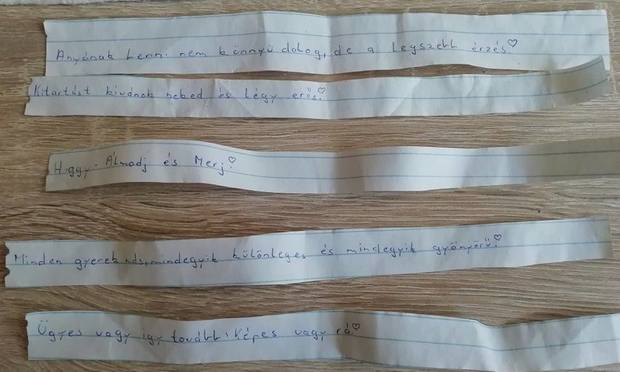 Anyának lenni nem könnyű dolog, de a legszebb érzés♡
Kitartást kívánok neked és légy erős!♡
Higgy. Álmodj és Merj!♡
Minden gyerek más, mindegyik különleges és mindegyik gyönyörű!♡
Ügyes vagy így tovább! Képes vagy rá♡